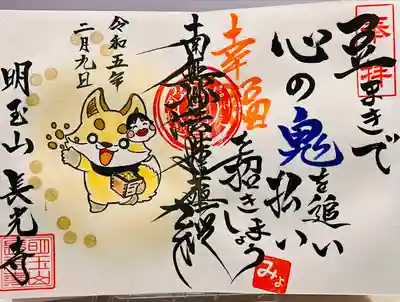 奉拝
豆まきで
心の鬼を追い払い
幸福を招きましょう
南無妙法蓮華経
令和五年
二月九日
明玉山 長光寺
みょ